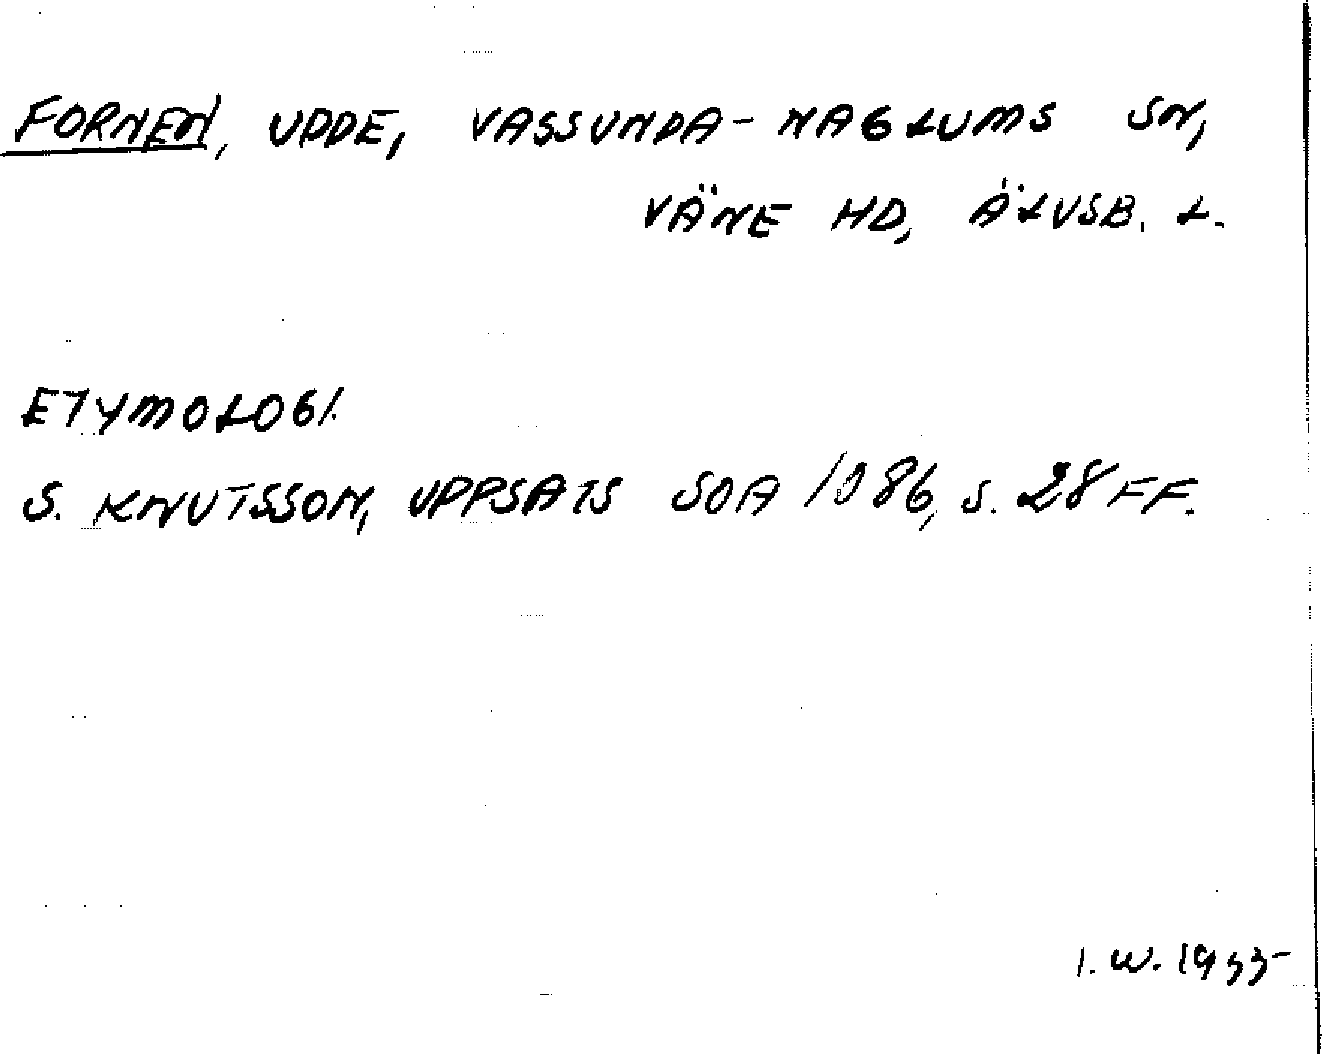 FORNEN, UDDE, VASSUNDA-NAGLUMS SN,
VÄNE HD, ÄLVSB. L.
ETYMOLOGI.
S. KNUTSSON, UPPSATS SOA 1086, S. 28 FF.
I. W. 1955